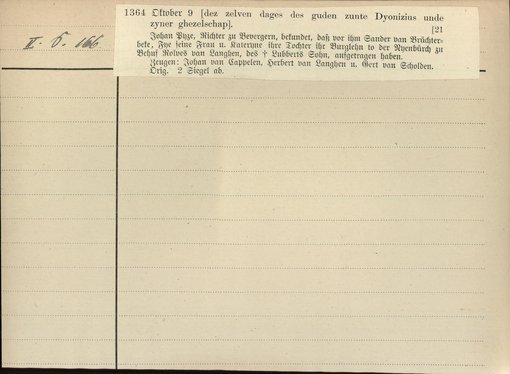 II. 5. 166
1364 Oktober 9 [dez zelven dages des guden zunte Dyonizius unde
zyner ghezelschap].
[21
Johan Pyze, Richter zu Bevergern, bekundet, daß vor ihm Sander van Brüchter-
beke, Fye seine Frau u. Kateryne ihre Tochter ihr Burglehn to der Nyenbürch zu
Behuf Rolves van Langhen, des † Lubberts Sohn, aufgetragen haben.
Zeugen: Johan van Cappelen, Herbert van Langhen u. Gert van Scholden.
Orig. 2 Siegel ab.